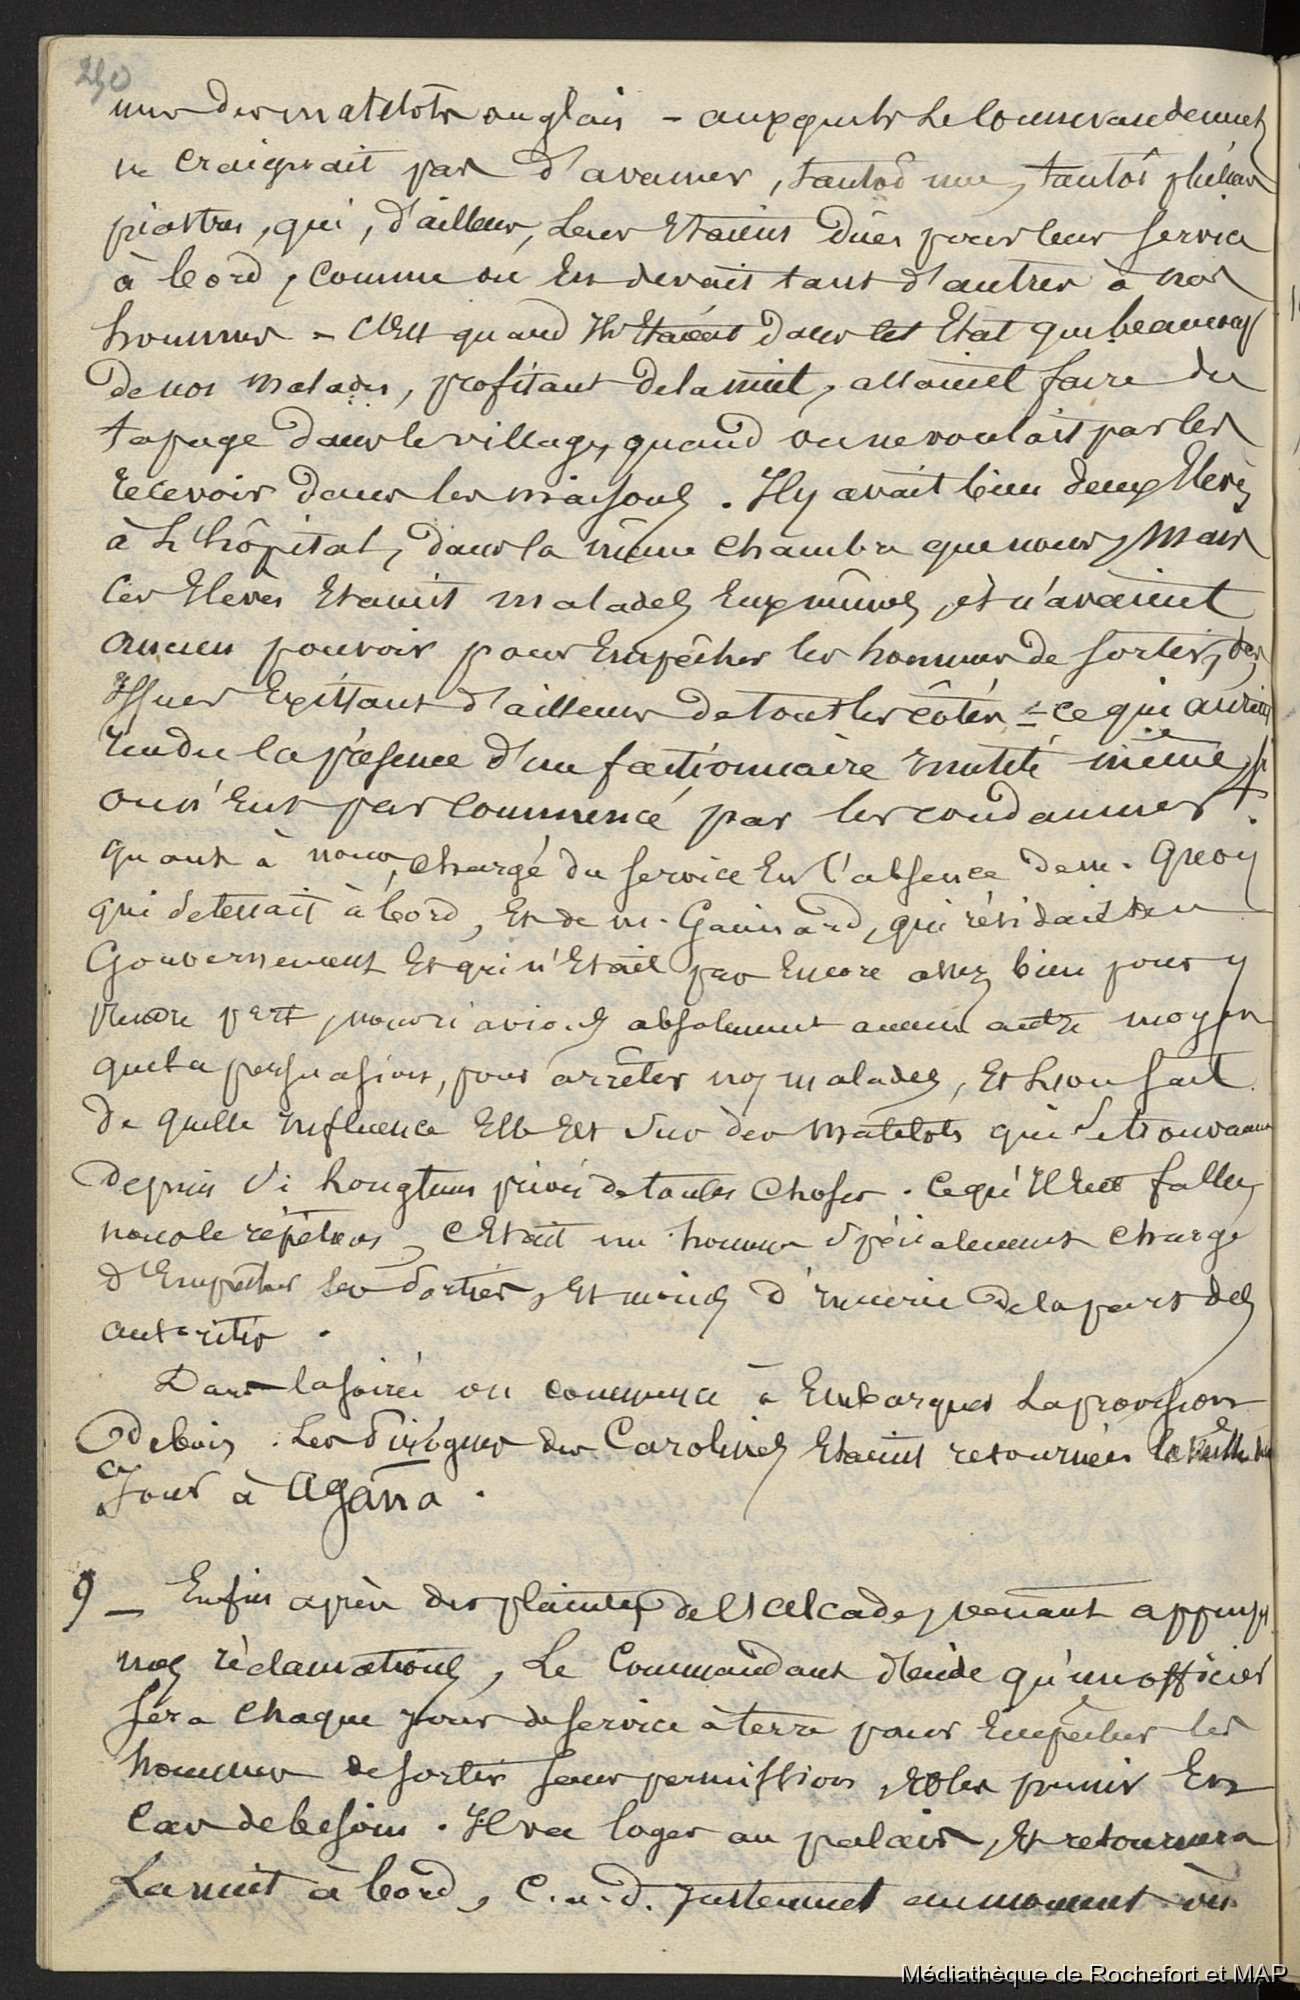 250
uns des matelots anglais – auxquels le commandement
ne craignait pas d'avancer, tantôt une, tantôt plusieurs
piastres, qui, d'ailleurs, leur étaient dûes pour leur service
à bord, comme on en devait tant d'autres à nos
hommes – C'est quand ils étaient dans cet état que beaucoup
de nos malades, profitant de la nuit, allaient faire du
tapage dans le village, quand on ne voulait pas les
recevoir dans les maisons. Il y avait bien deux Elèves
à l'hôpital, dans la même chambre que nous, mais
ces Elèves étaient malades eux mêmes, et n'avaient
aucun pouvoir pour empêcher les hommes de sortir, des
issues existant d'ailleurs de tous les côtés – ce qui aurait
rendu la présence d'un factionnaire inutile même, si
on n'eut pas commencé par les condamner.
quant à nous, chargé du service en l'absence de m. Quoy
qui se tenait à bord, et de m. Gaimard, qui résidait au
Gouvernement et qui n'était pas encore assez bien pour y
prendre part, nous n'avions absolument aucun autre moyen
que la persuasion, pour arrêter nos malades, et l'on sait
de quelle influence elle est sur des matelots qui se trouvaient
depuis si longtems privés de toutes choses. Ce qu'il eut fallu,
nous le répétons, c'était un homme spécialement chargé
d'empêcher les sorties, et moins d'incurie de la part des
autorités.
Dans la soirée on commence à embarquer la provision
de bois. Les Pirogues des Carolines étaient retournées la veille du
jour à Agaña.
9 – Enfin après des plaintes de l'Alcade, venant appuyer
nos réclamations, le Commandant décide qu'un officier
sera chaque jour de service à terre pour empêcher les
hommes de sortir sans permission, et les punir en
cas de besoin. Il va loger au palais, et retournera
la nuit à bord, c.a.d. justement au moment où
Médiathèque de Rochefort et MAP